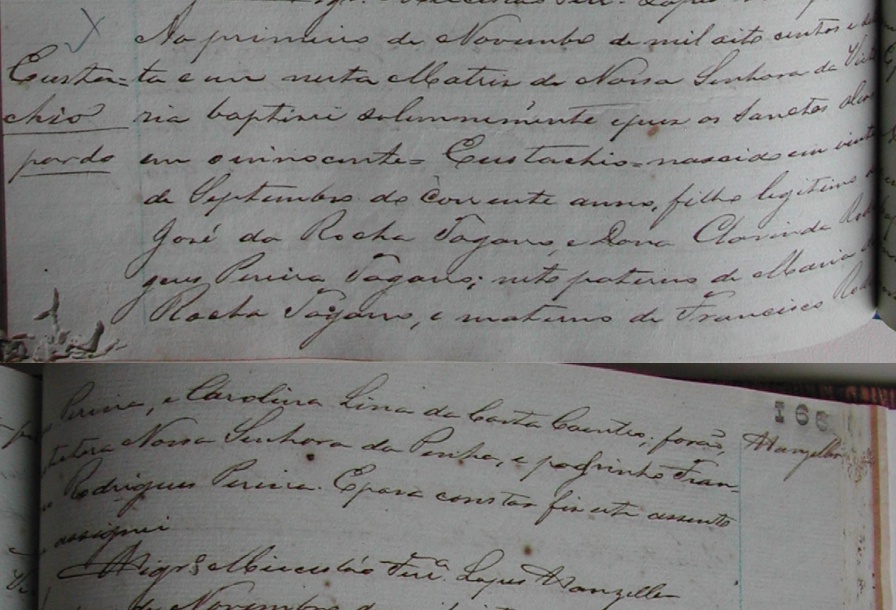 Ao primeiro de Novembro de mil oito centos e
Eusta= ta e um nesta Matriz de Nossa Senhora da Victo
chio ria baptisei solemnemente e puz os Sanctos oleos
pardo em o innocente= Eustachio= nascido em vinte
de Septembro do corrente anno, filho legitimo
José da Rocha Tagarro, e Dona Clorinda Rod
gues Pereira Tagarro; neto paterno de Maria
Rocha Tagarro, e materno de Francisco Rod
166
Pereira, e Carolina Lina da Costa Coentro; forão,
tectora Nossa Senhora da Penha, e padrinho Fran-
Rodrigues Pereira. E para constar fiz este assento
assignei
Migr.
Fer.ª Lopes
de Novembro